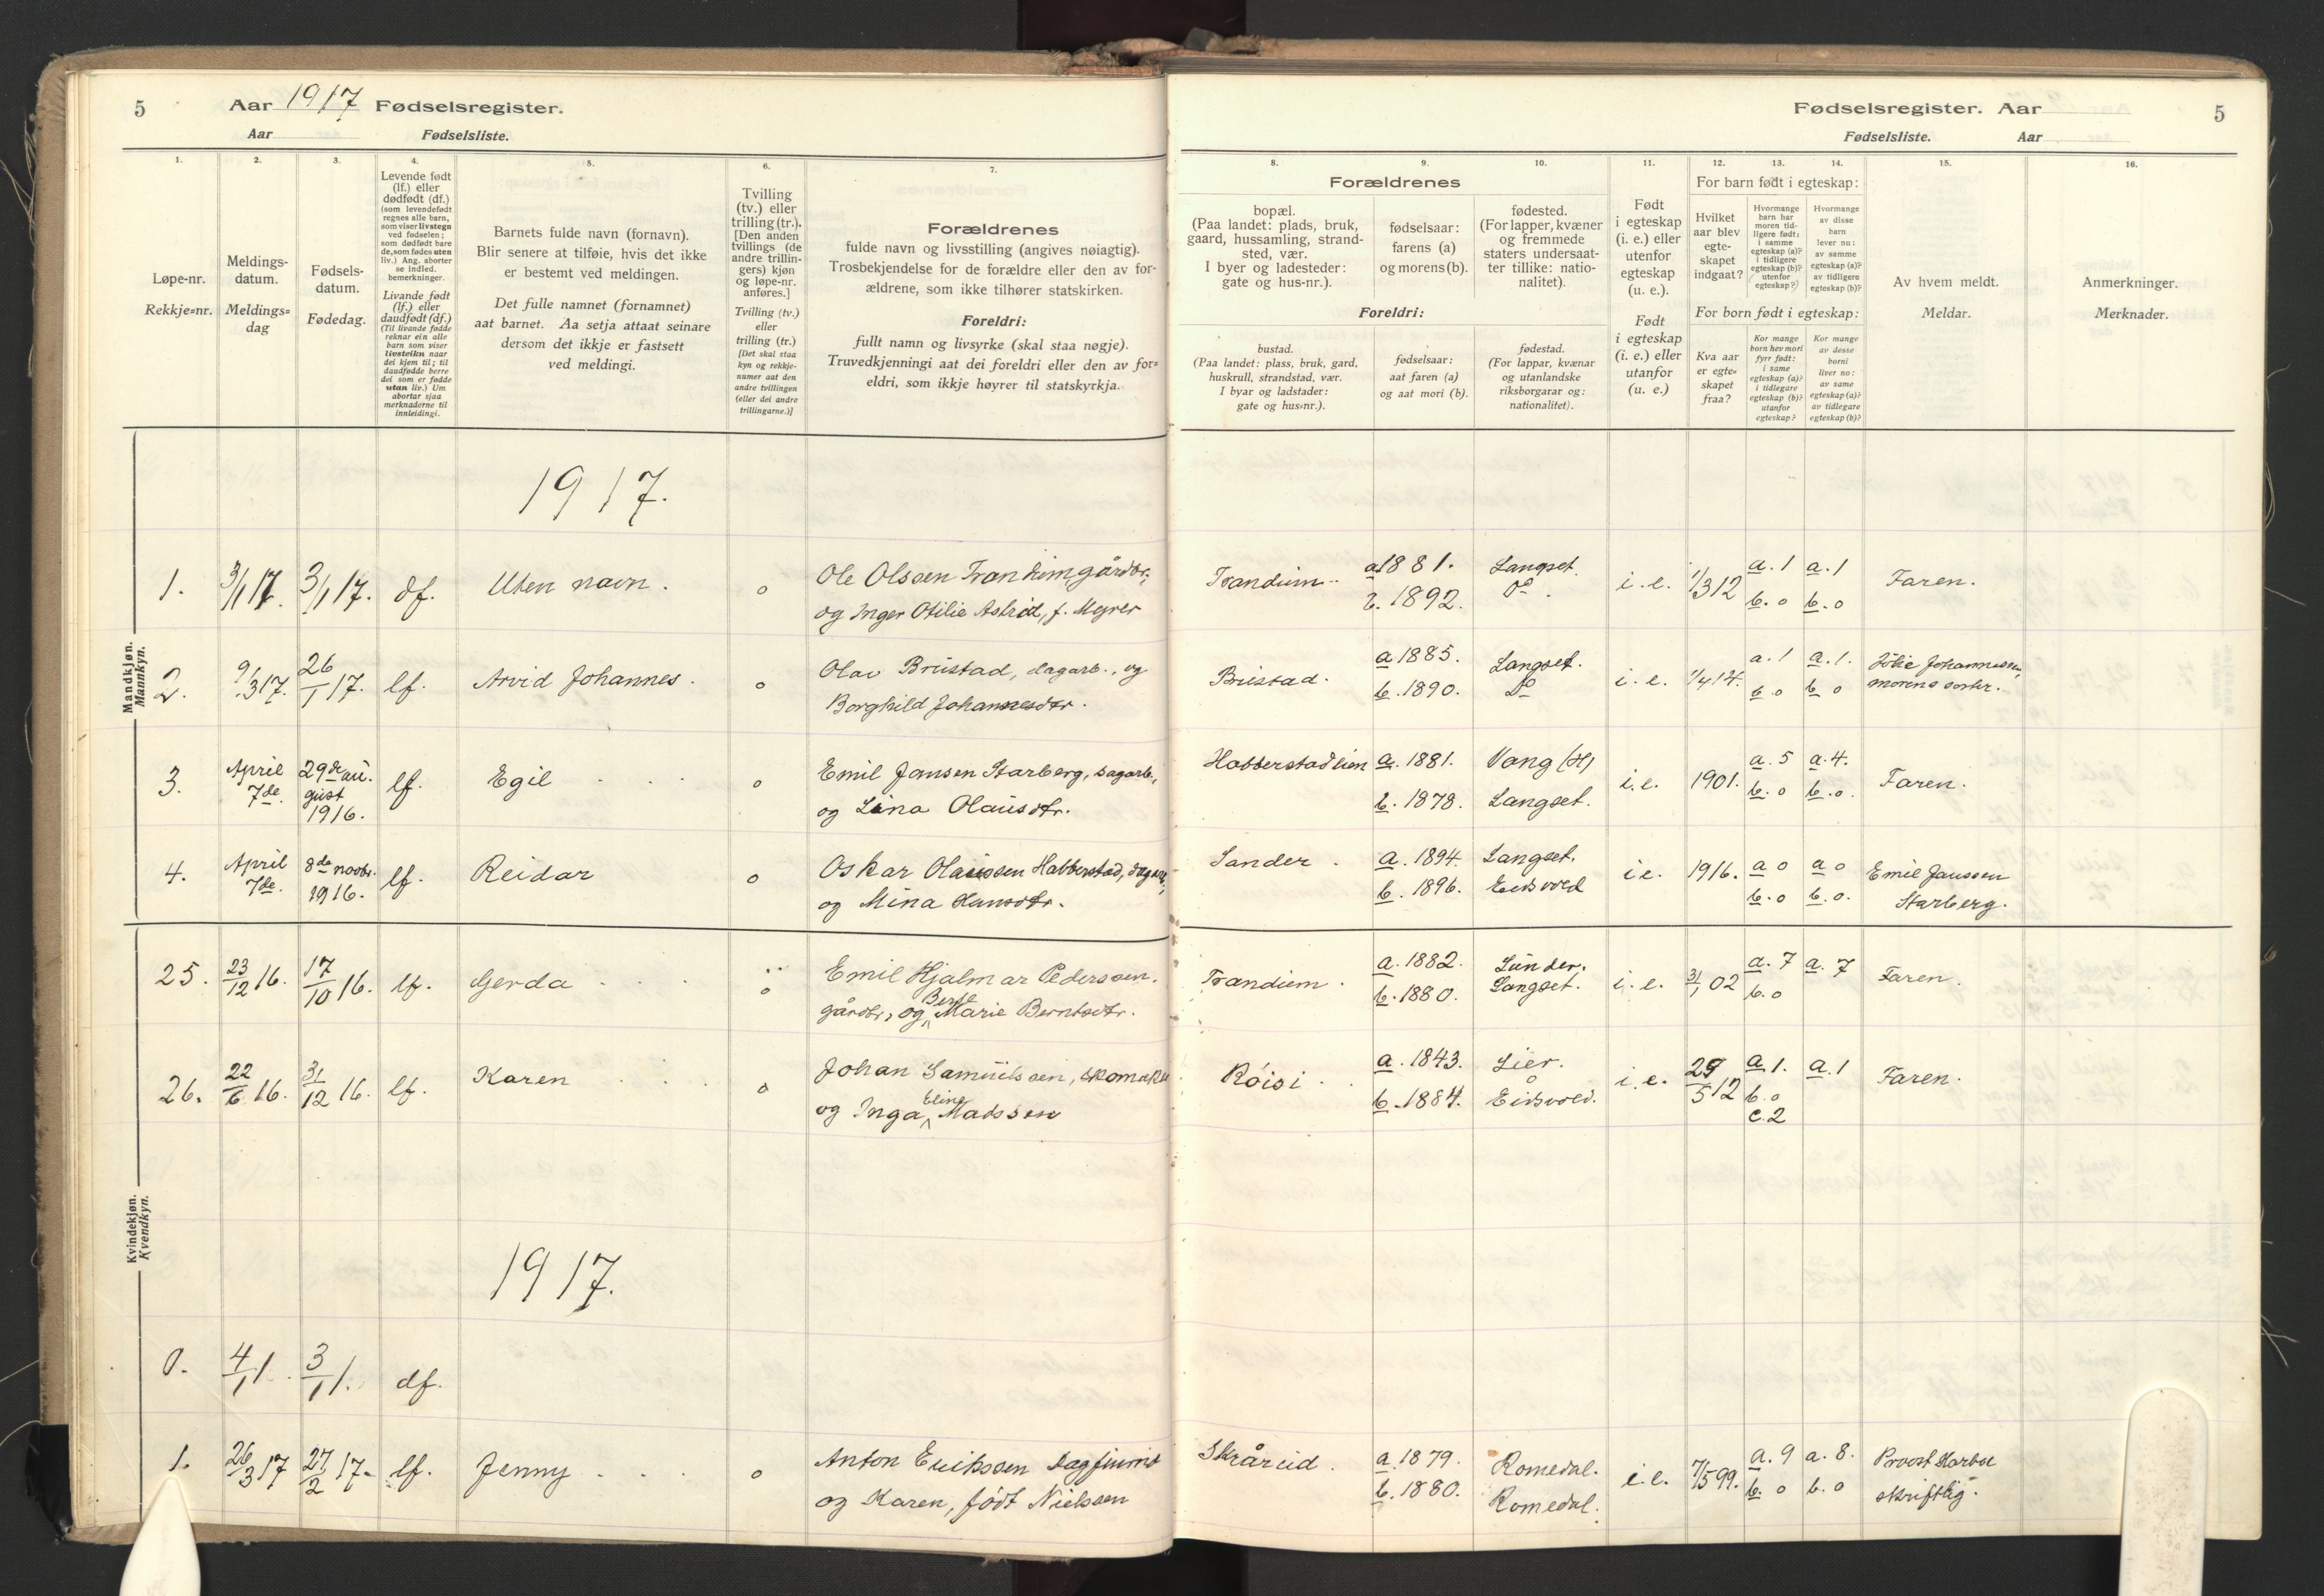 5 Aar 1917 Fødselsregister.
Aar Fødselsliste.
1. 2. 3. 4. 5. 6. 7.
Løpe-nr.
Rekkje=nr.
Meldings-
datum.
Meldings=
dag
Fødsels-
datum.
Fødedag.
Levende født
(lf.) eller
dødfødt (df.)
(som levendefødt
regnes alle barn,
som viser livstegn
ved fødselen;
som dødfødt bare
de, som fødes uten
liv.) Ang. aborter
se indled.
bemerkninger.
Livande født
(lf.) eller
daudfødt (df.)
(Til livande fødde
reknar ein alle
barn som viser
livsteikn naar
dei kjem til; til
daudfødde berre
dei som er fødde
utan liv.) Um
abortar sjaa
merknaderne til
innleidingi.
Barnets fulde navn (fornavn).
Blir senere at tilføie, hvis det ikke
er bestemt ved meldingen.
Det fulle namnet (fornamnet)
aat barnet. Aa setja attaat seinare
dersom det ikkje er fastsett
ved meldingi.
Tvilling
(tv.) eller
trilling (tr.).
[Den anden
tvillings (de
andre trillin-
gers) kjøn
og løpe-nr.
anføres.]
Tvilling (tv.)
eller
trilling (tr.)
[Det skal staa
kyn og rekkje-
numer aat den
andre tvillingen
(eller dei andre
trillingarne.)]
Forældrenes
fulde navn og livsstilling (angives nøiagtig).
Trosbekjendelse for de forældre eller den av for-
ældrene, som ikke tilhører statskirken.
Foreldri:
fullt namn og livsyrke (skal staa nøgje).
Truvedkjenningi aat dei foreldri eller den av for=
eldri, som ikkje høyrer til statskyrkja.
Fødselsregister. Aar 5
Fødselsliste. Aar
8. 9. 10. 11. 12. 13. 14. 15. 16.
Forældrenes
bopæl.
(Paa landet: plads, bruk,
gaard, hussamling, strand-
sted, vær.
I byer og ladesteder:
gate og hus-nr.).
fødselsaar:
farens (a)
og morens (b).
fødested.
(For lapper, kvæner
og fremmede
staters undersaat-
ter tillike: natio-
nalitet).
Foreldri:
bustad.
(Paa landet: plass, bruk, gard,
huskrull, strandstad, vær.
I byar og ladstader:
gate og hus=nr.).
fødselsaar:
aat faren (a)
og aat mori (b).
fødestad.
(For lappar, kvænar
og utanlandske
riksborgarar og:
nationalitet).
Født
i egteskap
(i. e.) eller
utenfor
egteskap
(u. e.).
Født
i egteskap
(i. e.) eller
utanfor
(u. e.)
For barn født i egteskap:
Hvilket
aar blev
egte-
skapet
indgaat?
Hvormange
barn har
moren tid-
ligere født:
i samme
egteskap (a)?
i tidligere
egteskap (b)?
utenfor
egteskap?
Hvormange
av disse
barn
lever nu:
av samme
egteskap (a)?
av tidligere
egteskap (b)?
For born født i egteskap:
Kva aar
er egte=
skapet
fraa?
Kor mange
born hev mori
fyrr født:
i same
egteskap (a)?
i tidlegare
egteskap (b)?
utanfor
egteskap?
Kor mange
av desse
borni
liver no:
av same
egteskap (a)?
av tidlegare
egteskap (b)?
Av hvem meldt.
Meldar.
Anmerkninger.
Merknader.
Mandkjøn.
Mannkyn.
1917.
1. 3/1 17. 3/1 17. df. Uten navn. o Ole Olssen Trandum gårdbr,
og Inger Otilie Astrid, f. Myrer
Trandum. a 1881. Langset. i. e. 1/3 12 a. 1 a. 1 Faren.
b. 1892. Do. b. o b. o
2. 9/3 17. 26/1 17. lf. Arvid Johannes. o Olav Brustad, dagarb., og
Borghild Johannesdtr.
Brustad. a 1885. Langset. i. e. 1/4 14. a. 1 a. 1. Johannessen,
b. 1890. Do b. o b. o morens
3. April 7de. 29de august 1916. lf. Egil o Emil Jansen Starberg, dagarb.,
og Lina Olausdtr.
Habberstadlien a. 1881. Vang (H) i. e. 1901. a. 5 a. 4. Faren.
b. 1878. Langset. b. o b. o.
4. April 7de. 8de novbr. 1916. lf. Reidar o Oskar Olaussen Habberstad, dagarb.,
og Mina Hansdtr.
Sander. a. 1894. Langset. i. e. 1916. a o a o Emil Janssen
b. 1896. Eidsvold b. o b. o. Starberg.
Kvindekjøn.
Kvendkyn.
25. 23/12 16. 17/10 16. lf. Gerda o Emil Hjalmar Pedersen.
gårdbr, og Berte Marie Berntsdtr.
Trandum. a. 1882. Sunder. i. e. 31/1 02 a. 7 a. 7 Faren.
b. 1880. Langset. b. o
26. 22/6 16. 31/12 16. lf. Karen o Johan Samuelssen, skomaker
og Inga Eline Madssen
Röisi. a. 1843. Lier. i. e. 29/5 12 a 1. a. 1 Faren.
b. 1884. Eidsvold. b. o
c. 2
1917.
0. 4/1 1. 3/1 1. df.
1. 26/3 17 27/2 17. lf. Jenny o Anton Erikssen
og Karen, født Nielssen
Skråreid. a. 1879. Romedal. i. e. 7/5 99. a. 9 a. 8. Provst
b. 1880. Romedal. b. o b. o skriftlig.